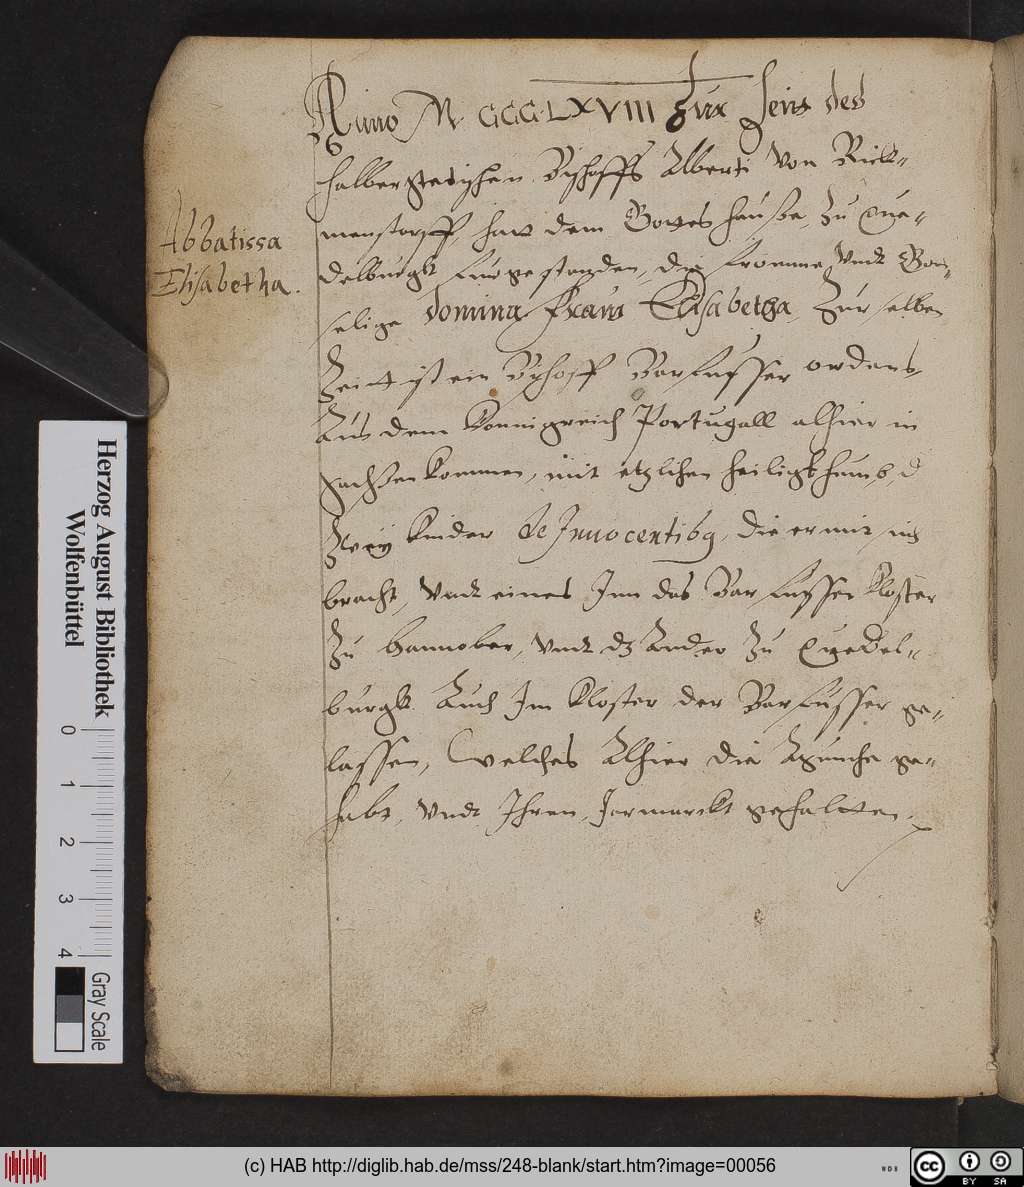 Anno M CCCLXVIII zur Zeit des
halberstetischen Byschoffs Alberti Von Rick-
menstorff, hatt dem Gottes hauße zu Que-
delburgk furgestanden, die fromme Vndt Gott-
selige domina fraw Elisabetha, Zur selben
Abbatissa
Elisabetha.
Zeit ist ein Byschoff Barfusser ordens
Aus dem Konnigreich Portugall alhier in
sachßen kommen, mit etzlichen heiligthumb,
Zwey Kinder de Innocentibq, die er mit sich
bracht, Vndt eines Inn das Barfusser Kloster
Zu hannober, Vndt dz Ander Zu Quedel-
burgk Auch Im Kloster der Barfusser ge-
lassen, Welches Alhier die Munche ge-
habt, Vndt Ihren Jermarckt gehaltten.
Herzog August Bibliothek
Wolfenbüttel
0 1 2 3 4
Gray Scale
(c) HAB http://diglib.hab.de/mss/248-blank/start.htm?image=00056
WDB
cc BY SA